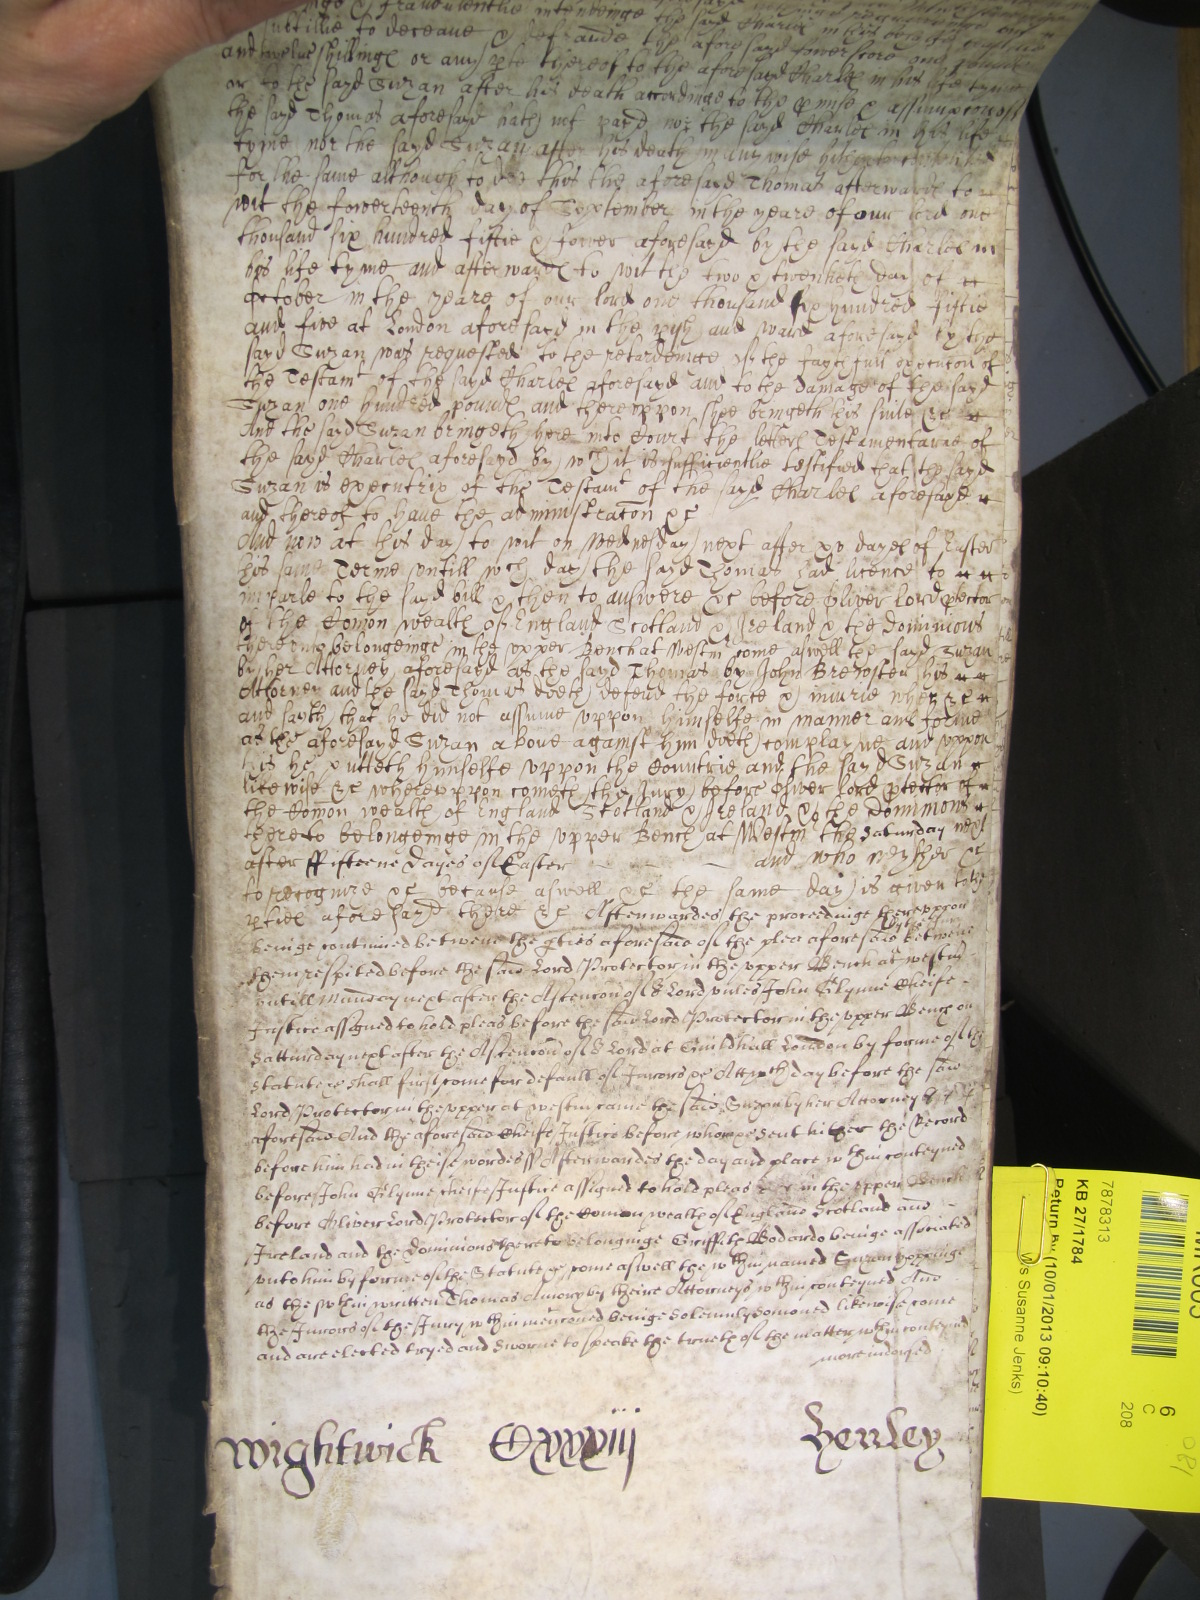 fraudulentlie intendinge the said Charles in his
to deceave & defraude the aforesayd fowerscore one pounds
and twelve shillings or any pte thereof to the aforesayd Charles in his life tyme
or to the sayd Suzan after his death accordinge to the pmise & assumpcon of
the sayd Thomas aforesayd hath not payd nor the sayd Charles in his life
tyme nor the sayd Suzan after his death in any wise hitherto contented
for the same although to doe this the aforesayd Thomas afterwards to
wit the fowerteenth day of September in the yeare of our lord one
thousand six hundred fiftie & fower aforesayd by the sayd Charles in
his life tyme and afterwards to wit the two & twentieth day of
October in the yeare of our lord one thousand six hundred fiftie
and five at London aforesayd in the pish and ward aforesayd by the
sayd Suzan was requested to the retardeinge of the faythfull execucon of
the Testamt of the sayd Charles aforesayd and to the damage of the sayd
Suzan one hundred pounds and thereuppon shee bringeth this suite &c
And the sayd Suzan bringeth here into Court the letters Testamentarie of
the sayd Charles aforesayd by wch it is sufficientlie testified that the sayd
Suzan is executrix of the Testamt of the sayd Charles aforesayd
and thereof to have the administracon &c
And now at this day to wit on Wednesday next after xv dayes of Easter
this same Terme untill wch day the sayd Thomas had licence to
imparle to the sayd bill & then to answere &c before Oliver Lord ptector
of the Comon wealth of England Scotland & Ireland & the dominions
thereunto belongeinge in the upper Bench at Westm come aswell the sayd Suzan
by her Attorney aforesayd as the sayd Thomas by John Brewster his
Attorney and the sayd Thomas doeth defend the force & iniurie when &c
and sayth that he did not assume uppon himselfe in manner and forme
as the aforesayd Suzan above against him doeth complayne and uppon
this he putteth himselfe uppon the Countrie and the sayd Suzan
likewise &c whereuppon cometh the Jury before Oliver lord ptector of
the Comon wealth of England Scotland & Ireland & the dominions
thereto belongeinge in the upper Bench at Westm the Saturday next
after ffifteene dayes of Easter and who neyther &c
to recognize &c because aswell &c the same day is given to the
pties aforesayd there &c Afterwardes the proceedinge thereuppon
beinge continued betweene the pties aforesaid of the plea aforesaid betweene
them respited before the said Lord Protector in the upper Bench at westm
untill Munday next after the Ascencon of or Lord unles John Glynne Cheife
Justice assigned to hold pleas before the said Lord Protector in the upper Bench on
Satturday next after the Ascencon of or Lord at Guildhall London by forme of the
Statute &c shall first come for default of Jurors &c Att wch day before the said
Lord Protector in the upper at westm came the said Suzan by her Attorney
aforesaid And the aforesaid Cheife Justice before whom &c sent hither the Record
before him had in theise wordes ss Afterwardes the day and place wthin conteyned
before John Glynne cheife Justice assigned to hold pleas in the upper Bench
before Oliver Lord Protector of the Comon wealth of England Scotland and
Ireland and the Dominions thereto belonginge Griffith Bodardo beinge associated
unto him by forme of the Statute &c come aswell the wthin named Suzan
as the wthin written Thomas Amory by theire Attorneys wthin conteyned And
the Jurors of the Jury wthin menconed beinge solemnly somoned likewise come
and are elected tryed and sworne to speake the trueth of the matter wthin conteyned
more indorsed
Wightwick Cxxxviij Henley
Return By (10/01/2013 09:10:40)
KB 27/1784
7878313
Susanne Jenks)
6
C
208